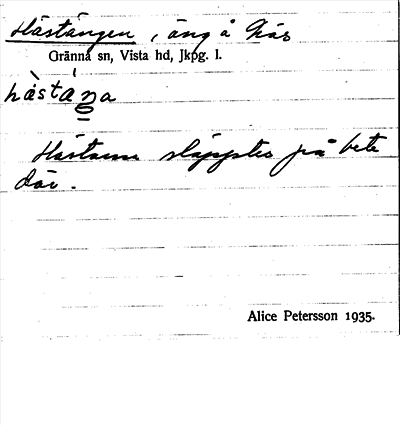 Hästängen, äng å Näs
Gränna sn, Vista hd, Jkpg. l.
Hästarna släpptes på bete
där.
Alice Petersson 1935.